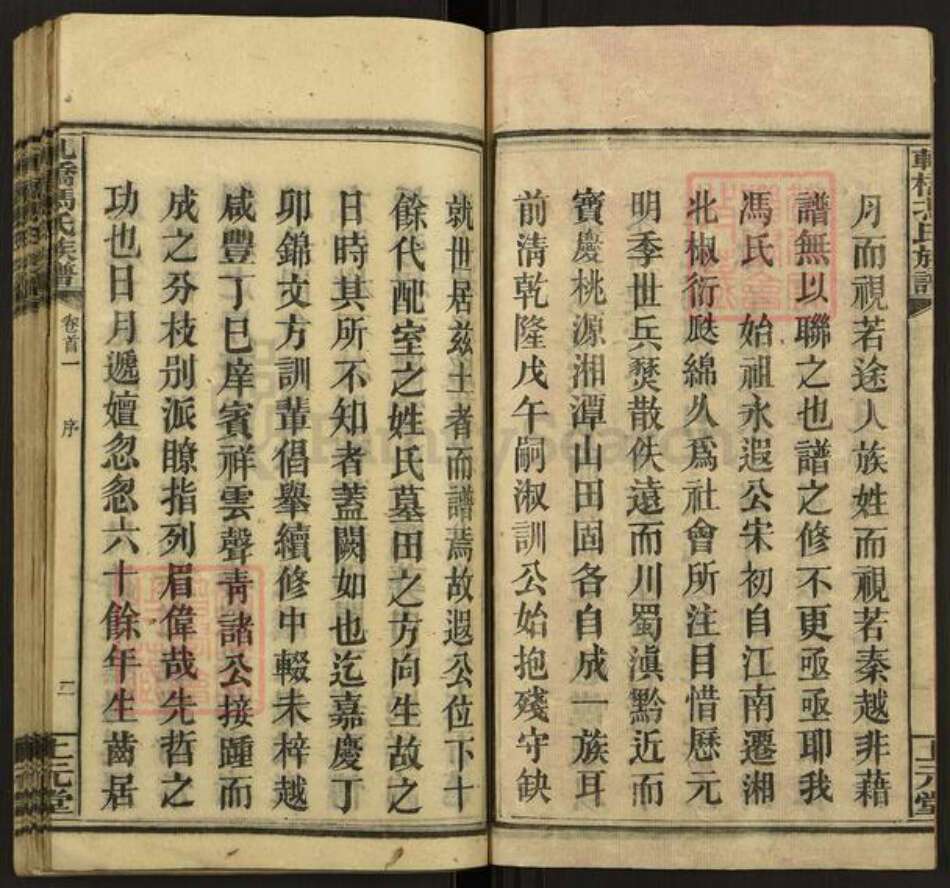 月而視若途人族姓而視若秦越非藉
譜無以聯之也譜之修不更亟亟耶我
馮氏 始祖永遐公宋初自江南遷湘
北椒衍瓞綿久爲社會所注目惜歷元
明季世兵燹散佚遠而川蜀滇黔近而
寶慶桃源湘潭山田固各自成一族耳
前淸乾隆戊午嗣淑訓公始抱殘守缺
就世居兹土者而譜焉故遐公位下十
餘代配室之姓氏墓田之方向生故之
日時其所不知者蓋闕如也迄嘉慶丁
卯錦文方訓輩倡舉續修中輟未梓越
咸豐丁巳庠賓祥雲聲靑諸公接踵而
成之分枝别派瞭指列眉偉哉先哲之
功也日月遞嬗忽忽六十餘年生齒居
馮氏族譜
卷首一
序
二
上元堂